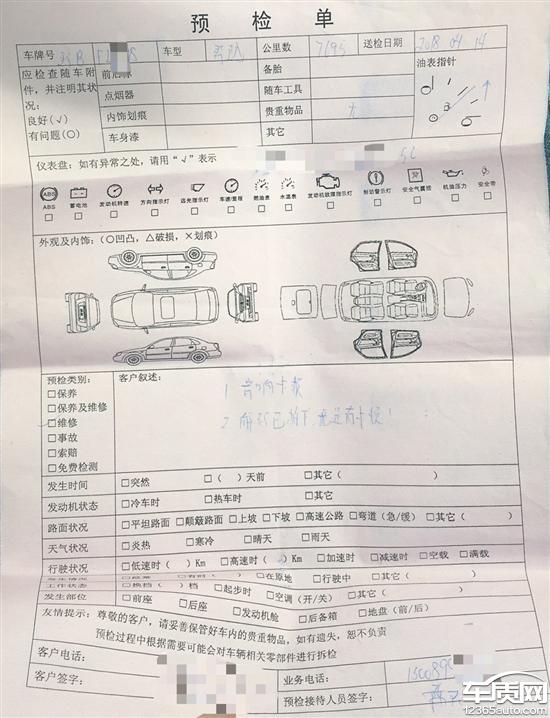 预检单
车牌号 车型 公里数 7695 送检日期 2018 04 14
应检查随车附件，并注明其状况： 前后脉 备胎 油表指针
点烟器 随车工具
良好(√) 内饰划痕 贵重物品
有问题(○) 车身漆 其它
仪表盘：如有异常之处，请用“√”表示
ABS 蓄电池 发动机转速 方向指示灯 远光指示灯 车速/里程 燃油表 水温表 发动机故障指示灯 制动警示灯 安全气囊 机油压力 安全带
外观及内饰：(○凹凸，△破损，×划痕)
预检类别： 客户叙述：
□保养 1 音响卡顿
□保养及维修 2
□维修
□事故
□索赔
□免费检测
发生时间 □突然 □（ ）天前 □其它（ ）
发动机状态 □冷车时 □热车时 □其它
路面状况 □平坦路面 □颠簸路面 □上坡 □下坡 □高速公路 □弯道（急/缓） □其它（ ）
天气状况 □炎热 □寒冷 □晴天 □雨天
行驶状况 □低速时（ ）Km □高速时（ ）Km □加速时 □减速时 □空载 □满载
□在原地 □行驶中 □其它（ ）
工作状态 □换档（ ）档 □起步时 □空调（开/关） □其它（ ）
发生部位 □前座 □后座 □发动机舱 □后备箱 □地盘（前/后）
友情提示：尊敬的客户，请妥善保管好车内的贵重物品，如有遗失，恕不负责
预检过程中根据需要可能会对车辆相关零部件进行拆检
客户电话： 业务电话：
客户签字： 预检接待人员签字：
车质网
12365auto.com